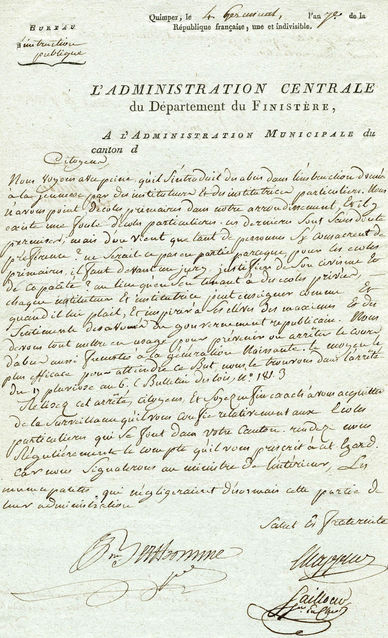 Quimper, le 4 Germinal, l'an 7e de la
République française, une et indivisible.
BUREAU
d'instruction
publique
L'ADMINISTRATION CENTRALE
du Département du FINISTÈRE,
A L'ADMINISTRATION MUNICIPALE du
canton d
Citoyens
Nous voyons avec peine, qu'il s'introduit des abus dans l'instruction donnée
à la jeunesse par des instituteurs et des institutrices particuliers. Nous
n'avons point d'écoles primaires dans notre arrondissement, Et il y
existe une foule d'écoles particulieres. Ces derniers sont sans doute
permises, mais d'où vient que tant de personnes s'y consacrent de
préférence? ne serait-ce pas en partie parceque, pour les écoles
primaires, il faut devant un jury, justifier de son civisme Et
de sa capacité? au lieu qu'en tenant des écoles privées,
chaque instituteur Et institutrice peut enseigner comme Et
quand il lui plait, Et inspirer à ses élèves des maximes Et des
sentiments du gouvernement republicain. Nous
devons tout mettre en usage pour prévenir ou arrêter le cours
d'abus aussi funestes à la génération naissante. le moyen le
plus efficace pour atteindre ce but nous le trouvons dans l'arrêté
du 17 pluviose an 6. (Bulletin des lois, No. 181.)
Relisez cet arrêté, citoyens, Et
de la surveillance qu'il vous confie relativement aux Ecoles
particulieres qui se sont dans votre Canton. rendez nous
Régulièrement le compte qu'il vous prescrit à cet Egard.
car nous signalerons au ministre de l'intérieur, Les
municipalités qui négligeraient désormais cette partie de
leur administration
Salut Et fraternité